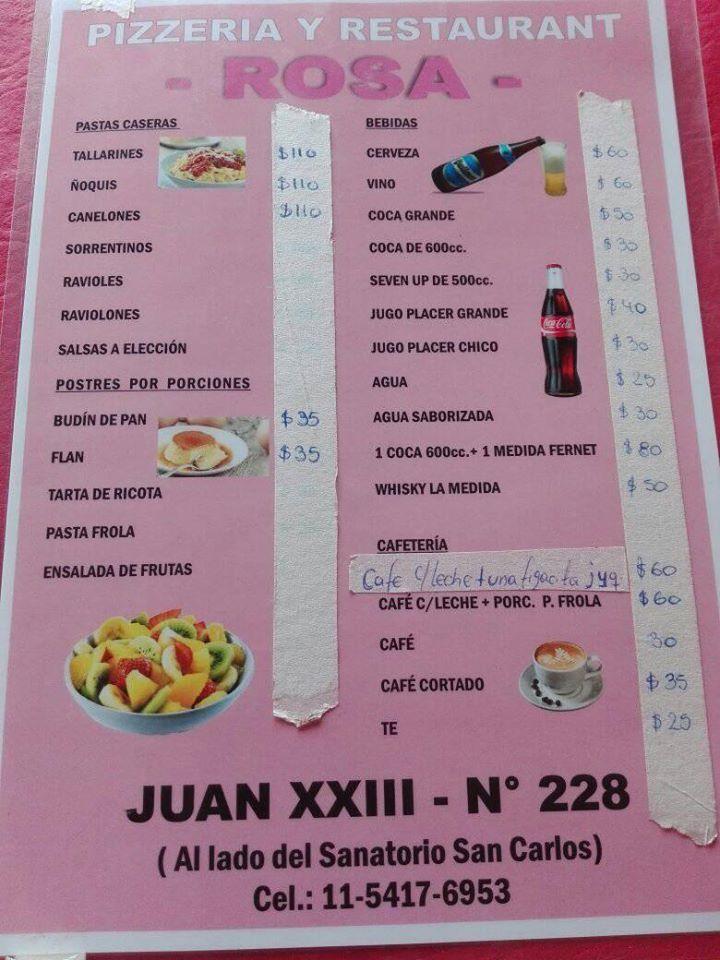 PIZZERIA Y RESTAURANT
- ROSA -
PASTAS CASERAS
TALLARINES $110
ÑOQUIS $110
CANELONES $110
SORRENTINOS
RAVIOLES
RAVIOLONES
SALSAS A ELECCIÓN
POSTRES POR PORCIONES
BUDÍN DE PAN $35
FLAN $35
TARTA DE RICOTA
PASTA FROLA
ENSALADA DE FRUTAS
BEBIDAS
CERVEZA $60
VINO $60
COCA GRANDE $50
COCA DE 600cc. $30
SEVEN UP DE 500cc. $30
JUGO PLACER GRANDE $40
JUGO PLACER CHICO $30
AGUA $25
AGUA SABORIZADA $30
1 COCA 600cc.+ 1 MEDIDA FERNET $80
WHISKY LA MEDIDA $50
Coca-Cola
CAFETERÍA
Cafe c/leche + una figacita jyq $60
CAFÉ C/LECHE + PORC. P. FROLA $60
CAFÉ 30
CAFÉ CORTADO $35
TE $25
JUAN XXIII - N° 228
( Al lado del Sanatorio San Carlos)
Cel.: 11-5417-6953